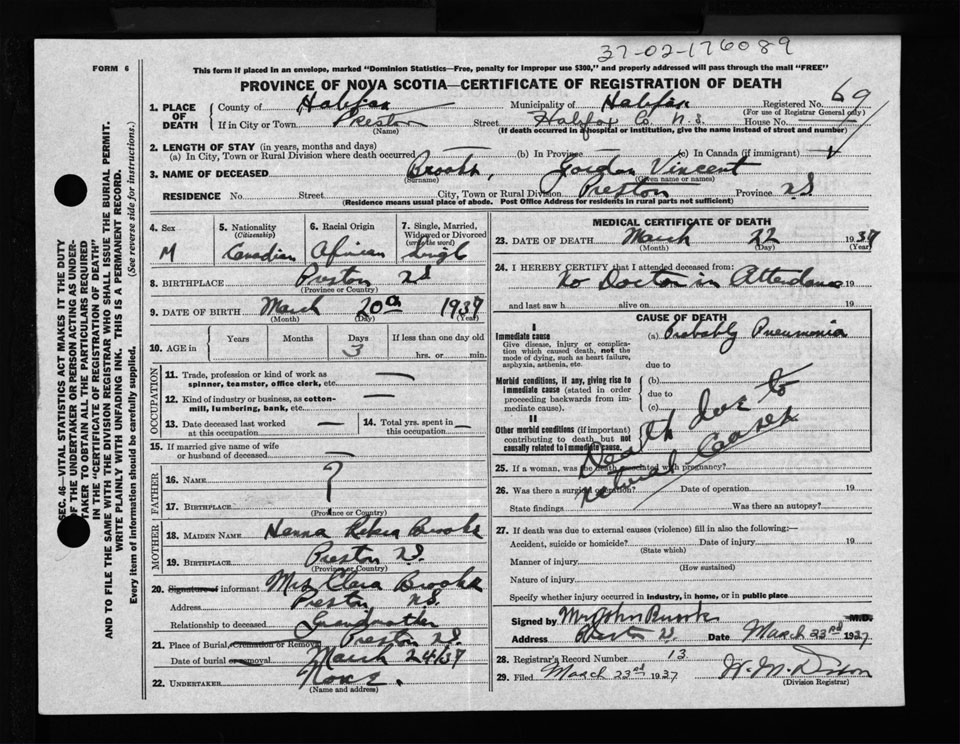 37-02-176089
FORM 6
This form if placed in an envelope, marked "Dominion Statistics—Free, penalty for improper use $300," and properly addressed will pass through the mail "FREE"
PROVINCE OF NOVA SCOTIA—CERTIFICATE OF REGISTRATION OF DEATH
1. PLACE OF DEATH County of Halifax Municipality of Halifax Registered No. 69
(For use of Registrar General only)
If in City or Town Preston Street Halifax Co. N.S. House No.
(Name) (If death occurred in a hospital or institution, give the name instead of street and number)
2. LENGTH OF STAY (in years, months and days)
(a) In City, Town or Rural Division where death occurred — (b) In Province — (c) In Canada (if immigrant)
3. NAME OF DECEASED Brooks, Gordon Vincent
(Surname) (Given name or names)
RESIDENCE No. Street City, Town or Rural Division Preston Province N.S
(Residence means usual place of abode. Post Office Address for residents in rural parts not sufficient)
4. Sex
M
5. Nationality
(Citizenship)
Canadian
6. Racial Origin
African
7. Single, Married, Widowed or Divorced
(write the word)
Singl
8. BIRTHPLACE Preston N.S
(Province or Country)
9. DATE OF BIRTH March 20th 1937
(Month) (Day) (Year)
10. AGE in
Years Months Days If less than one day old
3
hrs. or min.
OCCUPATION
11. Trade, profession or kind of work as spinner, teamster, office clerk, etc. —
12. Kind of industry or business, as cotton-mill, lumbering, bank, etc. —
13. Date deceased last worked at this occupation — 14. Total yrs. spent in this occupation —
15. If married give name of wife or husband of deceased —
FATHER
16. NAME ?
17. BIRTHPLACE
(Province or Country)
MOTHER
18. MAIDEN NAME Brooks
19. BIRTHPLACE Preston N.S.
(Province or Country)
20. Signature of informant Mrs Clara Brooks
Address Preston N.S.
Relationship to deceased Grandmother
21. Place of Burial, Cremation or Removal Preston N.S.
Date of burial or removal March 24/37
22. UNDERTAKER None.
(Name and address)
MEDICAL CERTIFICATE OF DEATH
23. DATE OF DEATH March 22 1937
(Month) (Day) (Year)
24. I HEREBY CERTIFY that I attended deceased from:
No Doctor in Attendance 19
and last saw h alive on 19
CAUSE OF DEATH
I
Immediate cause (a) Probably Pneumonia
Give disease, injury or complication which caused death, not the mode of dying, such as heart failure, asphyxia, asthenia, etc.
due to
Morbid conditions, if any, giving rise to immediate cause (stated in order proceeding backwards from immediate cause).
(b)
due to
(c)
II
Other morbid conditions (if important) contributing to death but not causally related to immediate cause.
Death due to
natural Causes
25. If a woman, was the death associated with pregnancy?
26. Was there a surgical operation? Date of operation 19
State findings Was there an autopsy?
27. If death was due to external causes (violence) fill in also the following:—
Accident, suicide or homicide? Date of injury 19
(State which)
Manner of injury
(How sustained)
Nature of injury
Specify whether injury occurred in industry, in home, or in public place
Signed by Mr John Brooks M.D.
Address Preston N.S. Date March 23rd 1937
28. Registrar's Record Number 13
29. Filed March 23rd 1937
(Division Registrar)
SEC. 46—VITAL STATISTICS ACT MAKES IT THE DUTY
OF THE UNDERTAKER OR PERSON ACTING AS UNDER-
TAKER "TO OBTAIN ALL THE PARTICULARS REQUIRED
IN THE "CERTIFICATE OF REGISTRATION OF DEATH"
AND TO FILE THE SAME WITH THE DIVISION REGISTRAR WHO SHALL ISSUE THE BURIAL PERMIT.
WRITE PLAINLY WITH UNFADING INK. THIS IS A PERMANENT RECORD.
Every item of information should be carefully supplied. (See reverse side for instructions.)